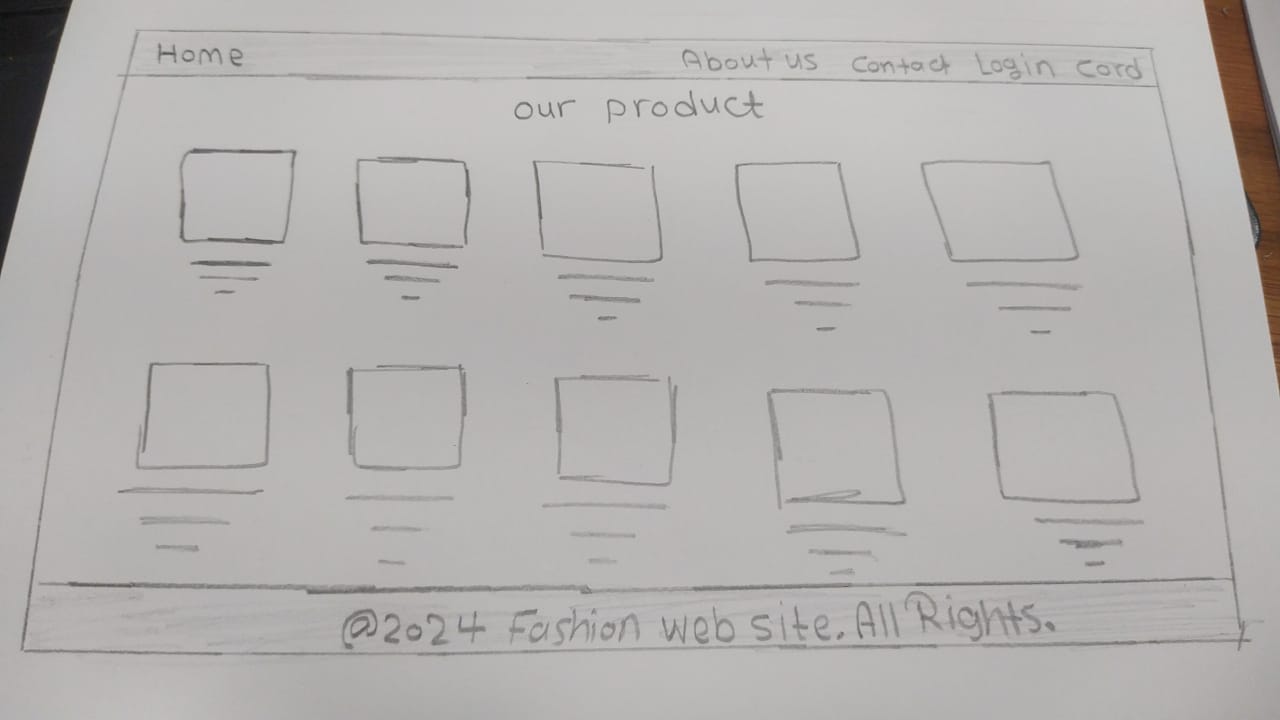 Home About us Contact Login Cord
our product
@2024 Fashion web site. All Rights.